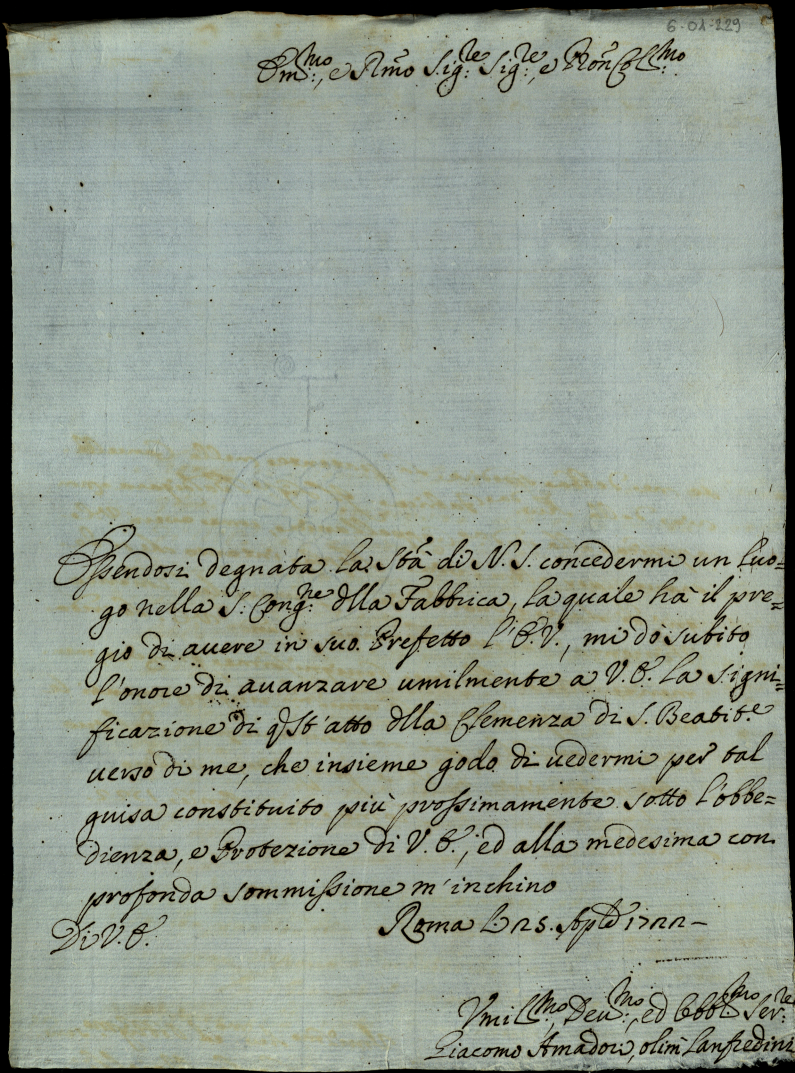 6-01-229
Em:mo, e Rmo Sig:re Sig:re, e Pron Col:mo
Essendosi degnata la Stà di N. S. concedermi un luo=
go nella S. Cong:ne dlla Fabbrica, la quale hà il pre=
gio di avere in suo Prefetto l'E.V., mi dò subito
l'onore di avanzare umilmente a V.E. la signi=
ficazione di qst'atto dlla Clemenza di S. Beatit.e
verso di me, che insieme godo di vedermi per tal
guisa constituito più prossimamente sotto l'obbe=
dienza, e Protezione di V.E.; ed alla medesima con
profonda sommissione m'inchino
Di V.E.
Roma li 25. Aple 1722-
Vmil:mo, Deu:mo, ed Obbl:mo Ser:re
Giacomo Amadori, olim Lanfredini